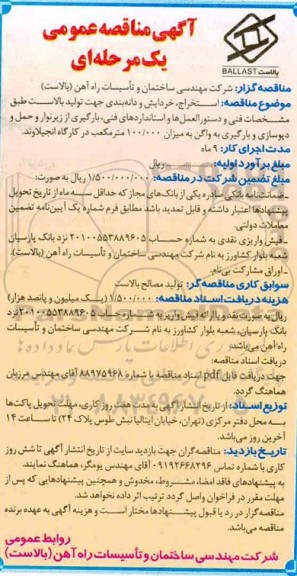 بالاست BALLAST
آگهی مناقصه عمومی
یک مرحله‌ای
مناقصه گزار: شرکت مهندسی ساختمان و تأسیسات راه آهن (بالاست)
موضوع مناقصه: استخراج، خردایش و دانه‌بندی جهت تولید بالاست طبق
مشخصات فنی و دستورالعمل‌ها و استانداردهای فنی، بارگیری از زیرنوار و حمل و
دپوسازی و بارگیری به واگن به میزان ۱۰۰/۰۰۰ مترمکعب در کارگاه انجیلاوند.
مدت اجرای کار: ۹ ماه
مبلغ برآورد اولیه: ریال
مبلغ تضمین شرکت در مناقصه: ۱/۵۰۰/۰۰۰/۰۰۰ ریال به صورت:
-ضمانتنامه بانکی صادره یکی از بانک‌های مجاز که حداقل سه ماه از تاریخ تحویل
پیشنهادها اعتبار داشته و قابل تمدید باشد مطابق فرم شماره یک آیین‌نامه تضمین
معاملات دولتی.
-فیش واریزی نقدی به شماره حساب ۲۰۱۰۰۵۵۳۸۸۹۶۰۵ نزد بانک پارسیان
شعبه بلوار کشاورز به نام شرکت مهندسی ساختمان و تأسیسات راه آهن (بالاست).
-اوراق مشارکت بی‌نام.
سوابق کاری مناقصه گر: تولید مصالح بالاست
هزینه دریافت اسناد مناقصه: ۱/۵۰۰/۰۰۰ (یک میلیون و پانصد هزار)
ریال به صورت نقد و یا ارائه فیش واریز به شماره حساب ۲۰۱۰۰۵۵۳۸۸۹۶۰۵ نزد
بانک پارسیان، شعبه بلوار کشاورز به نام شرکت مهندسی ساختمان و تأسیسات
راه آهن می‌باشد.
دریافت اسناد مناقصه:
جهت دریافت فایل pdf اسناد مناقصه با شماره ۸۸۹۷۵۹۶۸ آقای مهندس مرزبان
هماهنگ گردد.
توزیع اسناد: از تاریخ انتشار آگهی به مدت هفت روز کاری، مهلت تحویل پاکت‌ها
به محل دفتر مرکزی (تهران، خیابان ایتالیا نبش طوس پلاک ۲۴) تا ساعت ۱۴
آخرین روز می‌باشد.
تاریخ بازدید: مناقصه گران جهت بازدید سایت از تاریخ انتشار آگهی تا شش روز
کاری با شماره تماس ۰۹۱۹۲۶۶۸۲۹۶ آقای مهندس یومگر، هماهنگ نمایند.
به پیشنهادهای فاقد امضا، مشروط، مخدوش و همچنین پیشنهادهایی که پس از
مهلت مقرر در فراخوان واصل گردد ترتیب اثر داده نخواهد شد.
مناقصه گزار در رد یا قبول پیشنهادها مختار است و هزینه آگهی به عهده برنده
مناقصه می‌باشد.
روابط عمومی
شرکت مهندسی ساختمان و تأسیسات راه آهن (بالاست)